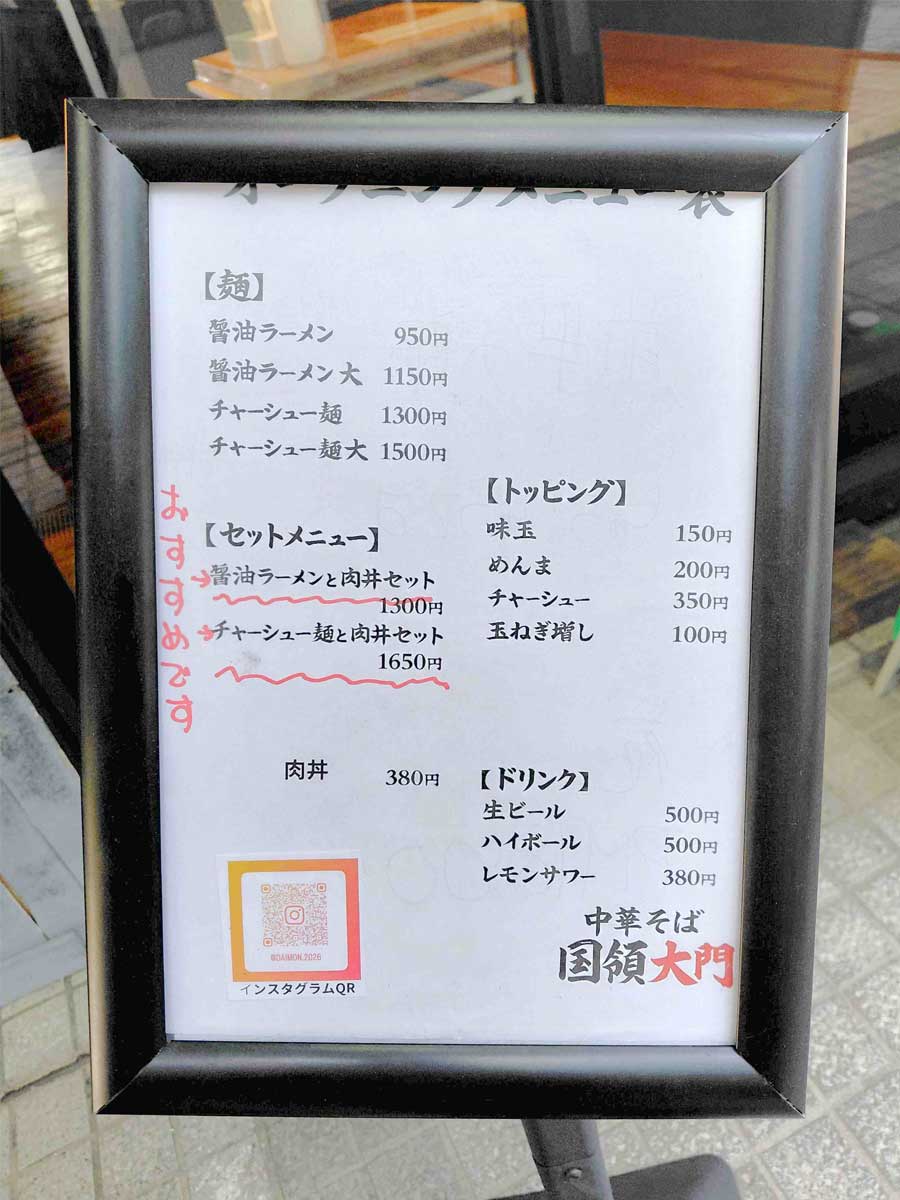 オープニングメニュー表
【麺】
醤油ラーメン 950円
醤油ラーメン大 1150円
チャーシュー麺 1300円
チャーシュー麺大 1500円
おすすめです
【セットメニュー】
→醤油ラーメンと肉丼セット
1300円
→チャーシュー麺と肉丼セット
1650円
肉丼 380円
【トッピング】
味玉 150円
めんま 200円
チャーシュー 350円
玉ねぎ増し 100円
【ドリンク】
生ビール 500円
ハイボール 500円
レモンサワー 380円
@DAIMON.2026
インスタグラムQR
中華そば
国領大門